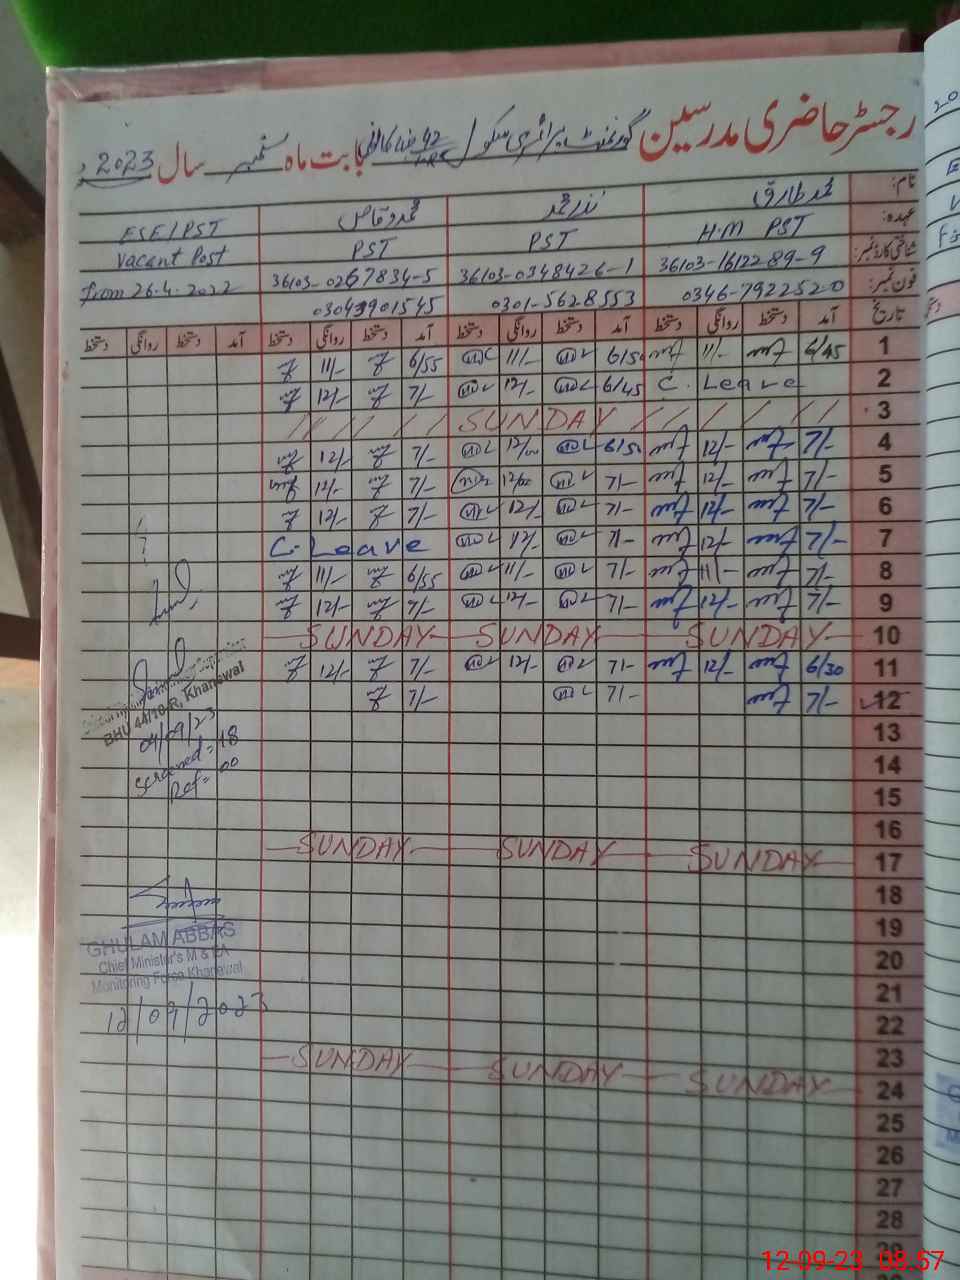 رجسٹر حاضری مدرسین گورنمنٹ پرائمری سکول 42 بابت ماہ ستمبر سال 2023ء
نام: محمد طارق نذر محمد محمد وقاص
عہدہ: H.M PST PST PST ESE/PST
شناختی کارڈ نمبر: 36103-1612289-9 36103-0348426-1 36103-0267834-5 Vacant Post
فون نمبر: 0346-7922520 0301-5628553 03043901545 from 26.4.2022
تاریخ آمد دستخط روانگی دستخط آمد دستخط روانگی دستخط آمد دستخط روانگی دستخط آمد دستخط روانگی دستخط
1 6/45 11/- 6/50 11/- 6/55 11/-
2 C. Leave 6/45 12/- 7/- 12/-
3 SUNDAY
4 7/- 12/- 6/50 12/00 7/- 12/-
5 7/- 12/- 7/- 12/00 7/- 12/-
6 7/- 12/- 7/- 12/- 7/- 12/-
7 7/- 12/- 7/- 12/- C. Leave
8 7/- 11/- 7/- 11/- 6/55 11/-
9 7/- 12/- 7/- 12/- 7/- 12/-
10 SUNDAY SUNDAY SUNDAY
11 6/30 12/- 7/- 12/- 7/- 12/-
12 7/- 7/- 7/-
13
14
15
16
17 SUNDAY SUNDAY SUNDAY
18
19
20
21
22
23
24 SUNDAY SUNDAY SUNDAY
25
26
27
28
29
BHU 44/10-R, Khanewal
04/09/23
Screened = 18
Ref = 00
GHULAM ABBAS
Chief Minister's M & EA
Monitoring Force Khanewal
12/09/2023
12-09-23 08:57